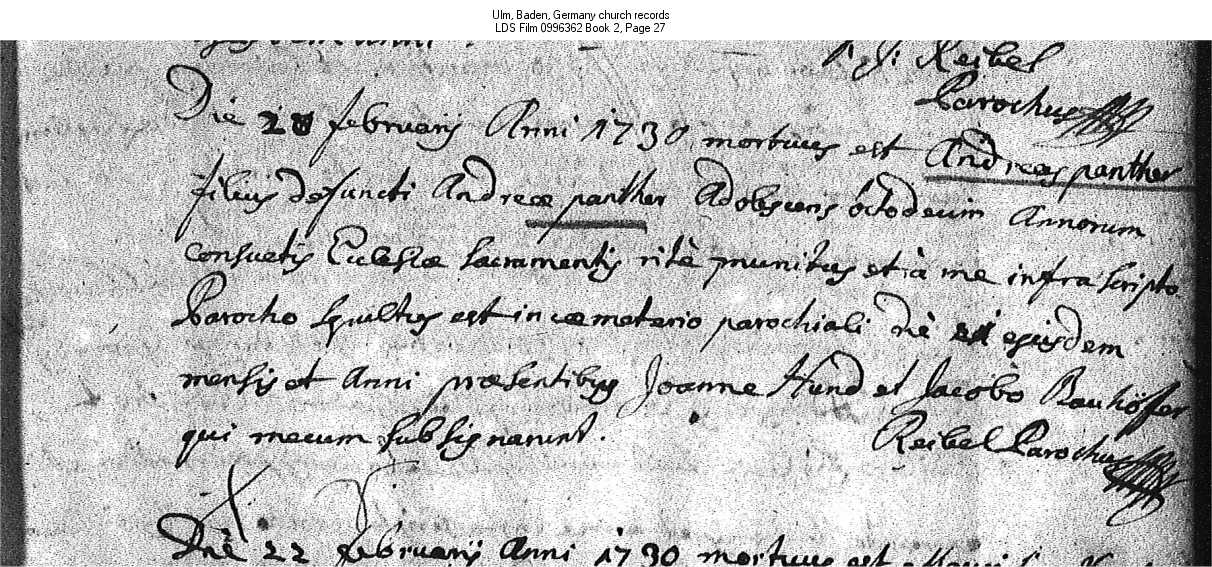 Ulm, Baden, Germany church records
LDS Film 0996362 Book 2, Page 27
anni.
Reibel
Parochus
Die 20 februarij Anni 1730 mortuus est Andreas panther
filius defuncti Andreæ panther Adolescens octodecim Annorum
consuetis Ecclesiæ sacramentis ritè munitus et à me infra scripto
Parocho sepultus est in cæmeterio parochiali die 21 ejusdem
mensis et Anni præsentibus Joanne Hund et Jacobo Bauhöffer
qui mecum subsignarunt.
Reibel Parochus
Die 22 februarij Anni 1730 mortuus est